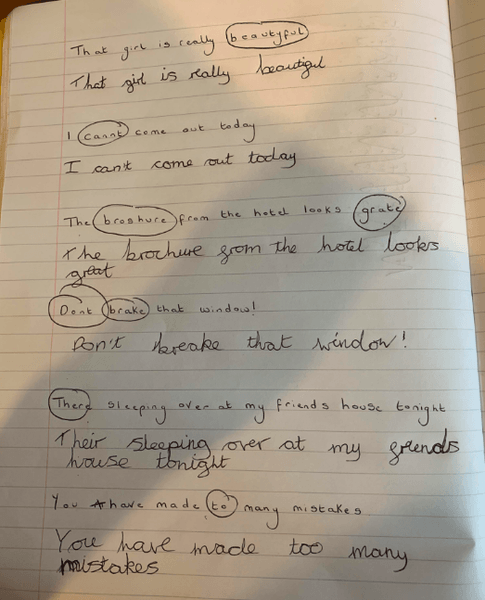 That girl is really beautyful
That girl is really beautiful
I cannt come out today
I can't come out today
The broshure from the hotel looks grate
The brochure from the hotel looks
great
Dont brake that window!
Don't breake that window!
There sleeping over at my friends house tonight
Their sleeping over at my friends
house tonight
You have made to many mistakes
You have made too many
mistakes